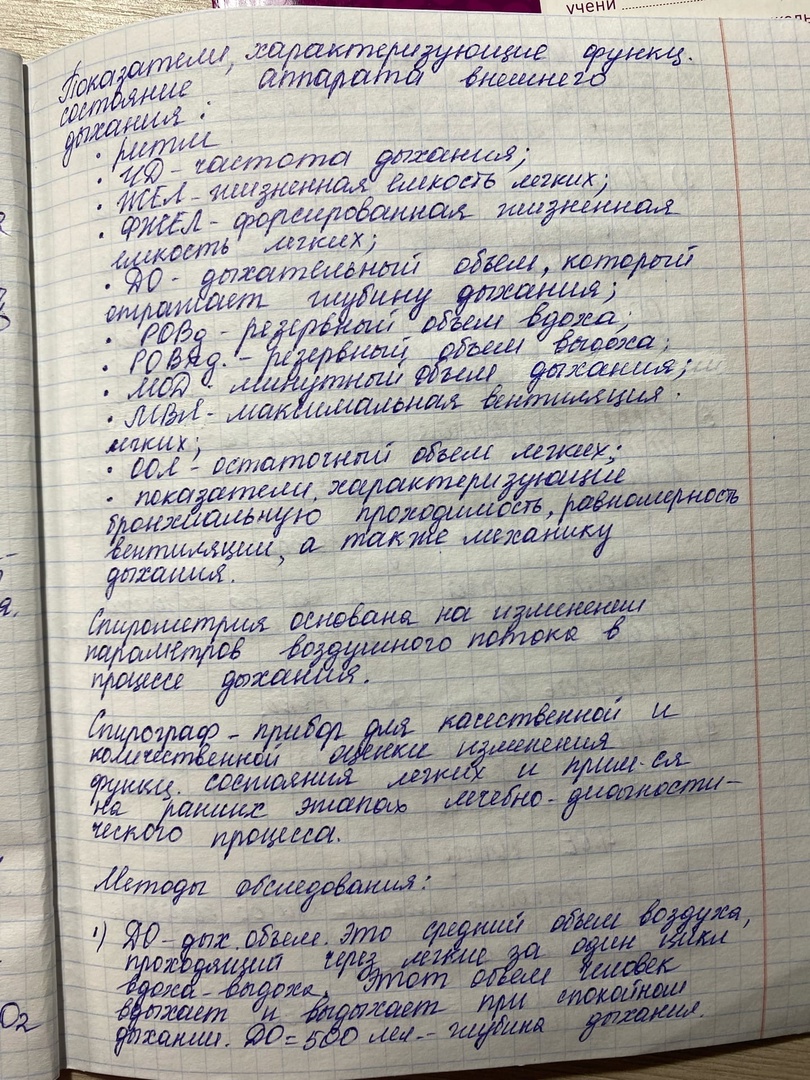 учени
Показатели, характеризующие функц.
состояние аппарата внешнего
дыхания:
· ритм
· ЧД - частота дыхания;
· ЖЕЛ - жизненная емкость легких;
· ФЖЕЛ - форсированная жизненная
емкость легких;
· ДО - дыхательный объем, который
отражает глубину дыхания;
· РОВд - резервный объем вдоха;
· РОВыд. - резервный объем выдоха;
· МОД - минутный объем дыхания;
· МВЛ - максимальная вентиляция
легких;
· ООЛ - остаточный объем легких;
· показатели, характеризующие
бронхиальную проходимость, равномерность
вентиляции, а также механику
дыхания.
Спирометрия основана на изменении
параметров воздушного потока в
процессе дыхания.
Спирограф - прибор для качественной и
количественной оценки изменения
функц. состояния легких и прим-ся
на ранних этапах лечебно-диагности-
ческого процесса.
Методы обследования:
1) ДО - дых. объем. Это средний объем воздуха,
проходящий через легкие за один цикл
вдоха-выдоха. Этот объем человек
вдыхает и выдыхает при спокойном
дыхании. ДО = 500 мл - глубина дыхания.
O2